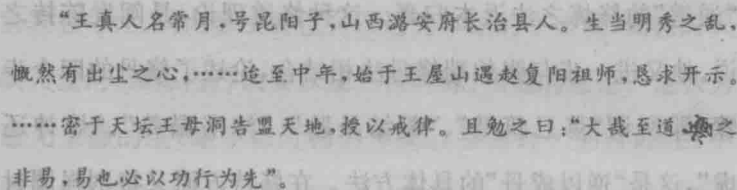 “王真人名常月,号昆阳子,山西潞安府长治县人。生当明秀之乱,
慨然有出尘之心,……迨至中年,始于王屋山遇赵复阳祖师,恳求开示。
……密于天坛王母洞告盟天地,授以戒律。且勉之曰:“大哉至道,之
非易,易也必以功行为先”。